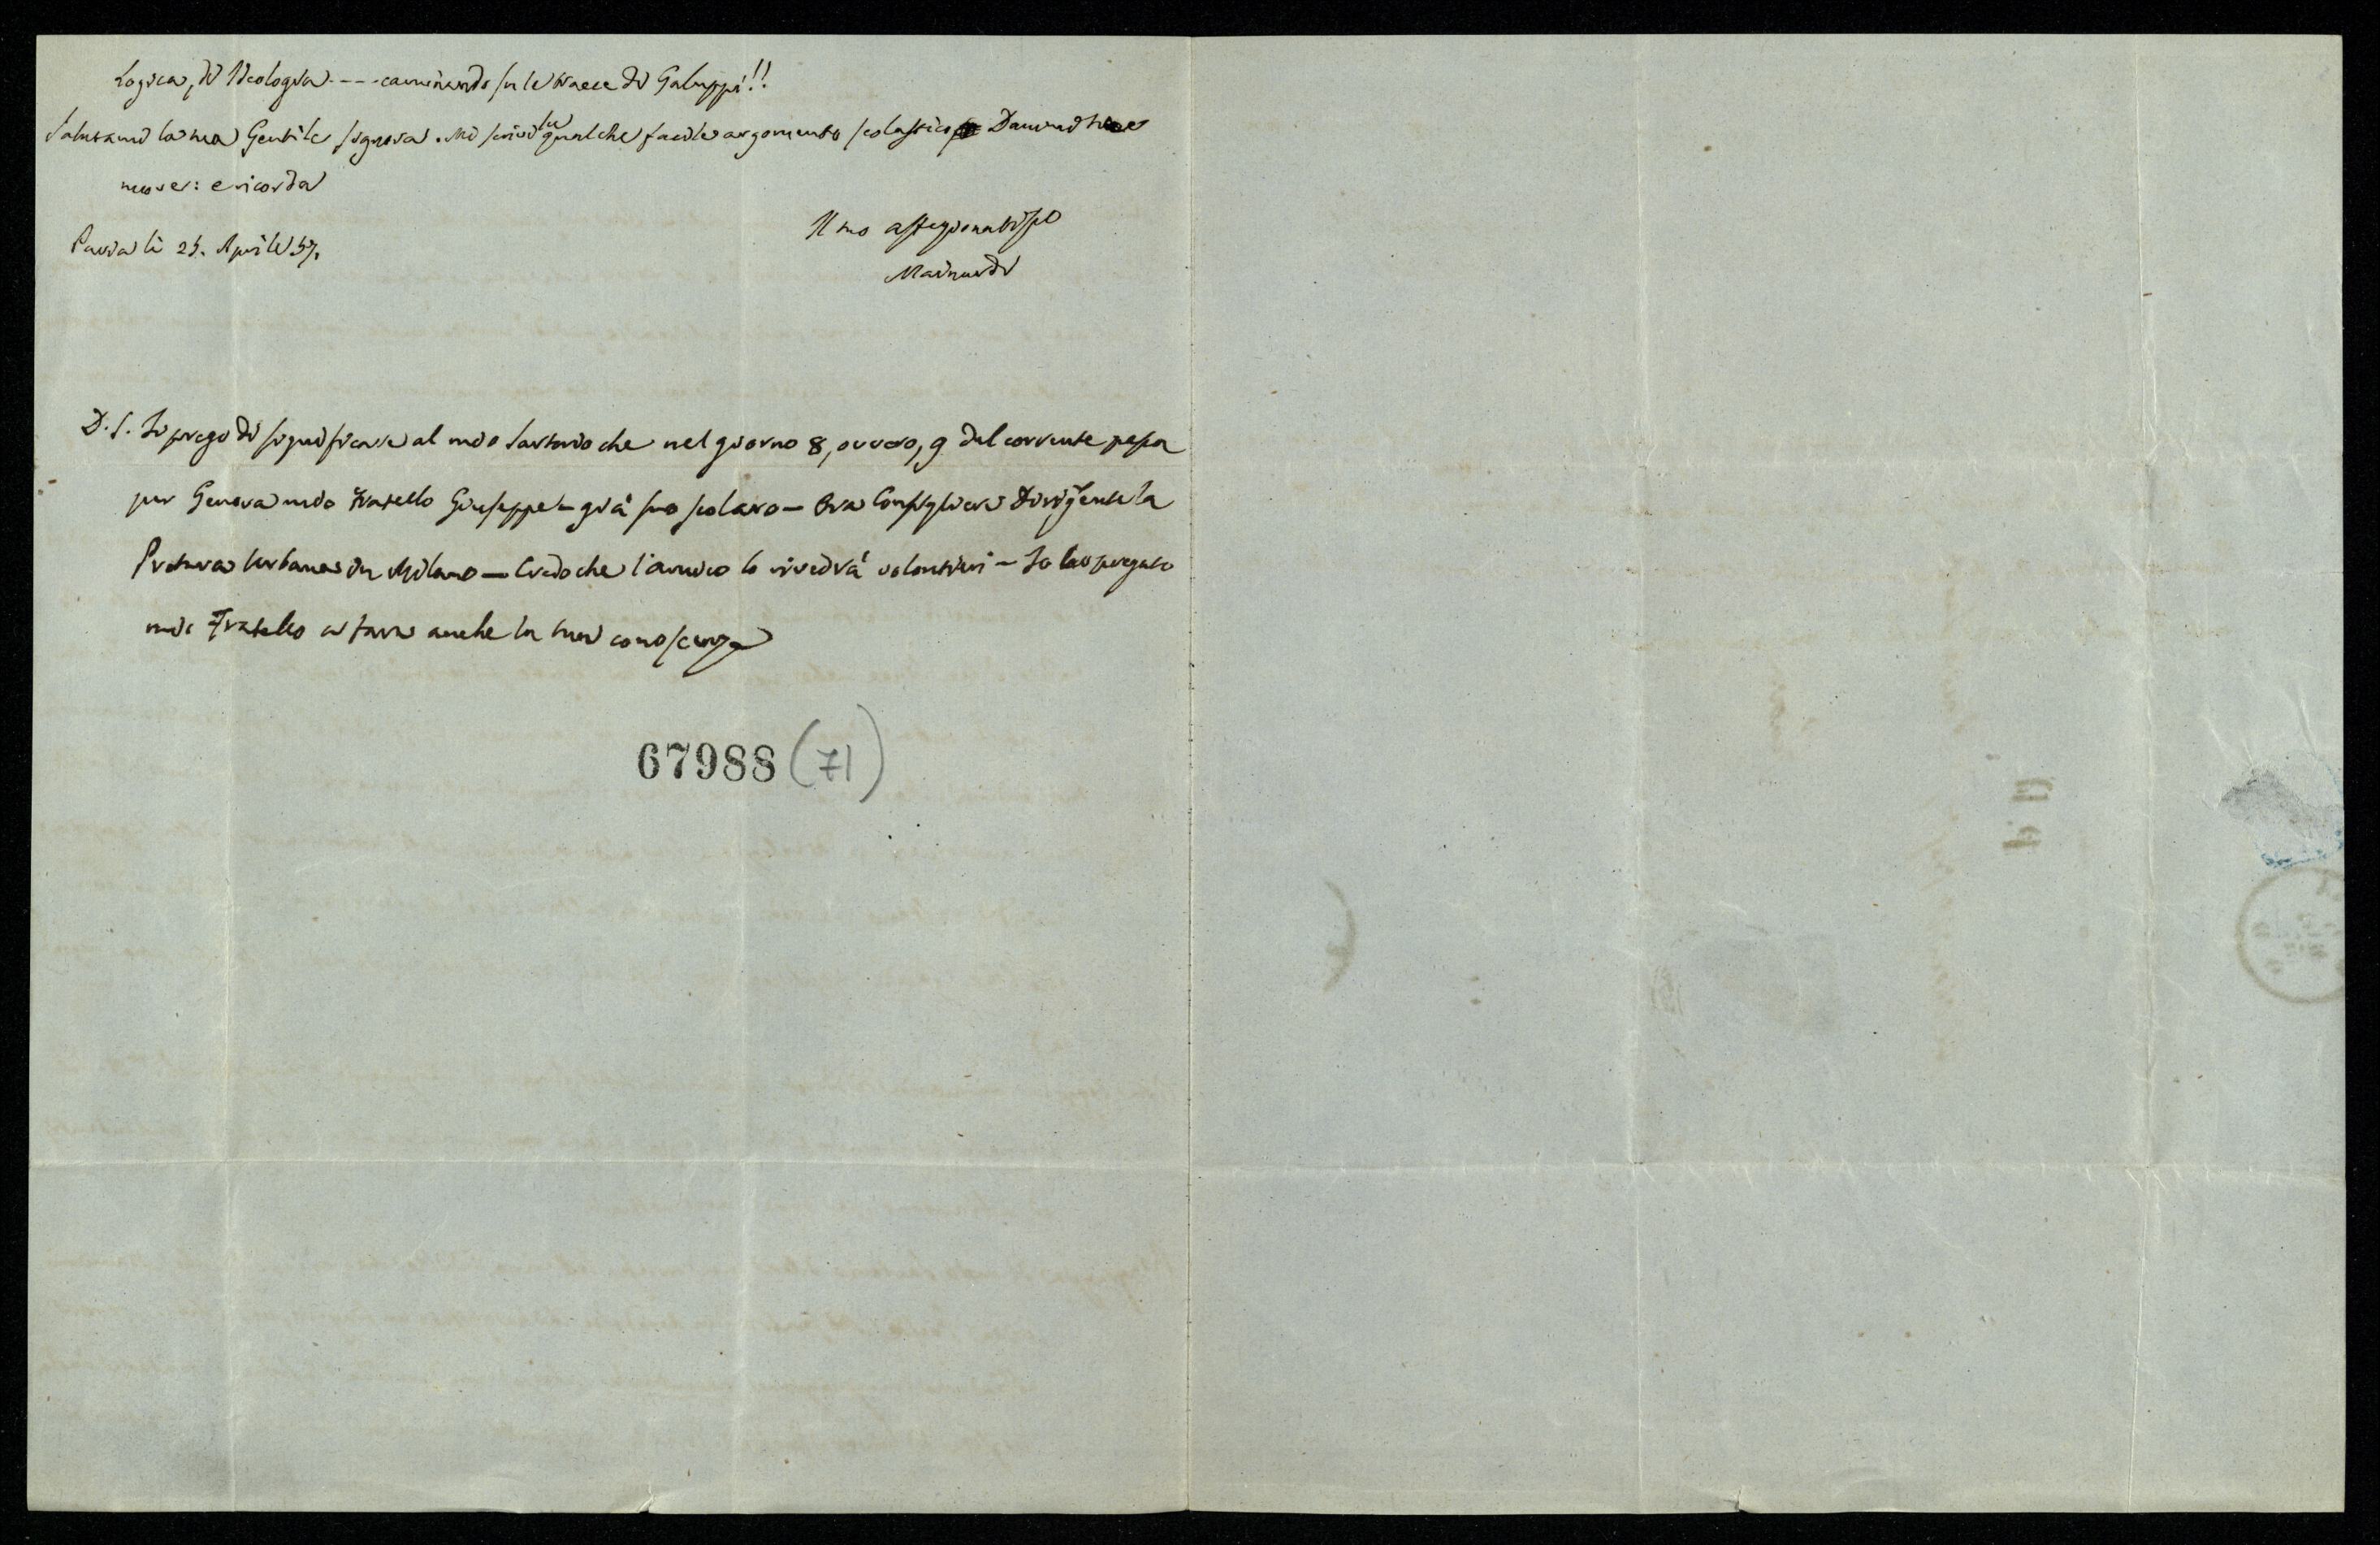 Logica, di Ideologia - - - caminando su le tracce di Galuppi!!
Salutami la tua Gentile signora. Mi scrivi su qualche facile argomento scolastico Dammi tue
nuove: e ricorda
Il tuo affezionatissо
Pavia li 25. Aprile 57.
Mainardi
D.S. Ti prego di significare al mio Santorio che nel giorno 8, ovvero, 9 del corrente passa
per Genova mio Fratello Giuseppe - già suo scolaro - Ora Consigliere Dirigente la
Pretura Urbana in Milano - Credo che l'amico lo rivedrà volontieri - Io ho pregato
mio Fratello a fare anche la tua conoscenza
67988 (71)